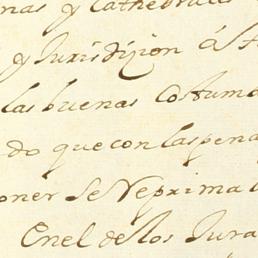 nas y Cathedrales
y Jurisdizion á
las buenas Costum
do que con las pena
oner Se Reprima
En el de los Jura